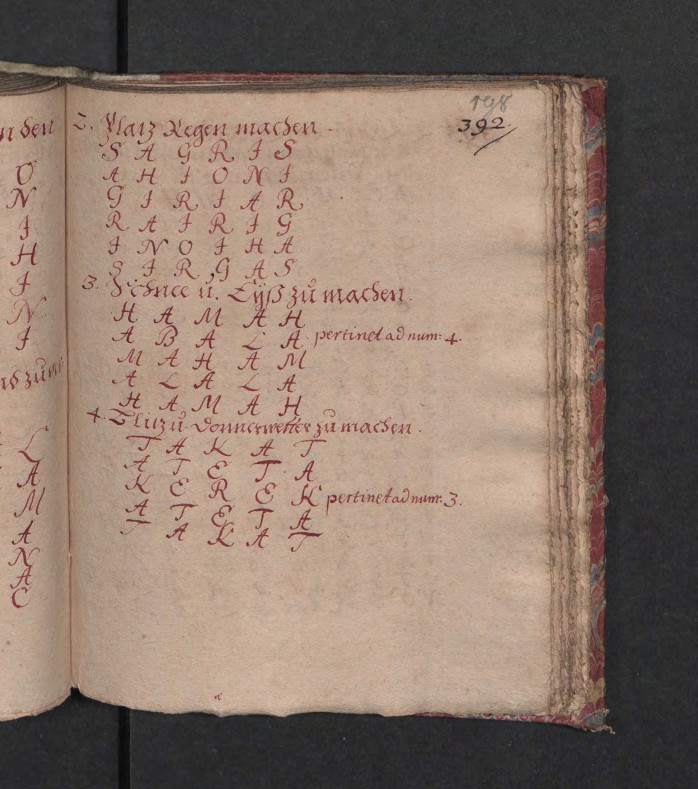 n den
O
N
I
H
I
N
I
L
A
M
A
N
A
C
198
392.
2. Platz Regen machen.
S A G R I S
A H I O N I
G I R I A R
R A I R I G
I N O I H A
S I R G A S
3. Schnee u. Eÿß zŭ machen.
H A M A H
A B A L A pertinet ad num: 4.
M A H A M
A L A L A
H A M A H
4. Blitz ŭ Donnerwetter zŭ machen.
T A K A T
A T E T A
K E R E K pertinet ad num: 3.
A T E T A
T A K A T